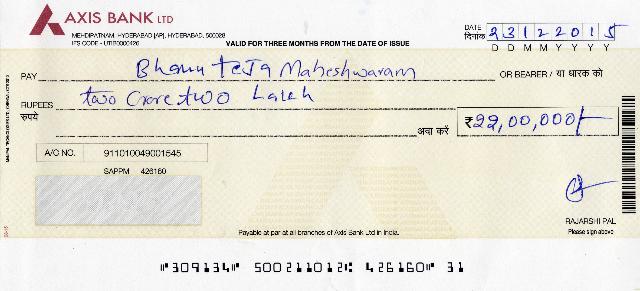 AXIS BANK LTD
MEHDIPATNAM, HYDERABAD [AP], HYDERABAD, 500028
IFS CODE - UTIB0000426
VALID FOR THREE MONTHS FROM THE DATE OF ISSUE
DATE
दिनांक 23122015
D D M M Y Y Y Y
PAY Bhanu teja Maheshwaram OR BEARER / या धारक को
RUPEES two Crore two Lakh
रुपये
अदा करें ₹22,00,000/-
A/C NO. 911010049001545
SAPPM 426160
RAJARSHI PAL
Please sign above
Payable at par at all branches of Axis Bank Ltd in India.
⑈309134⑈ 500211012⑆ 426160⑈ 31